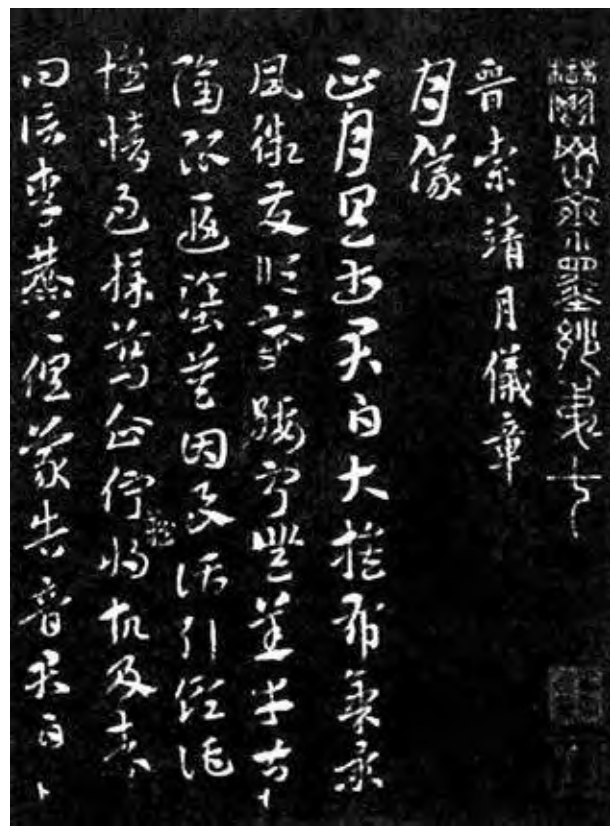 鬱岡齋墨妙第七
晉索靖月儀章
月儀
正月具書君白大蔟布氣景
風微發順變綏寧無恙幸甚
隔限遐塗莫因良話引領託
懷情過採葛企佇難將故及表
問信李麃〻俱蒙告音君白